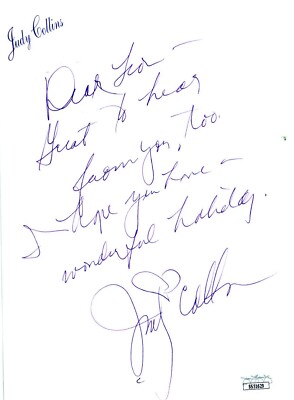 Judy Collins
Dear
Great to hear
from you, too.
I hope you have a
wonderful holiday.
Judy Collins